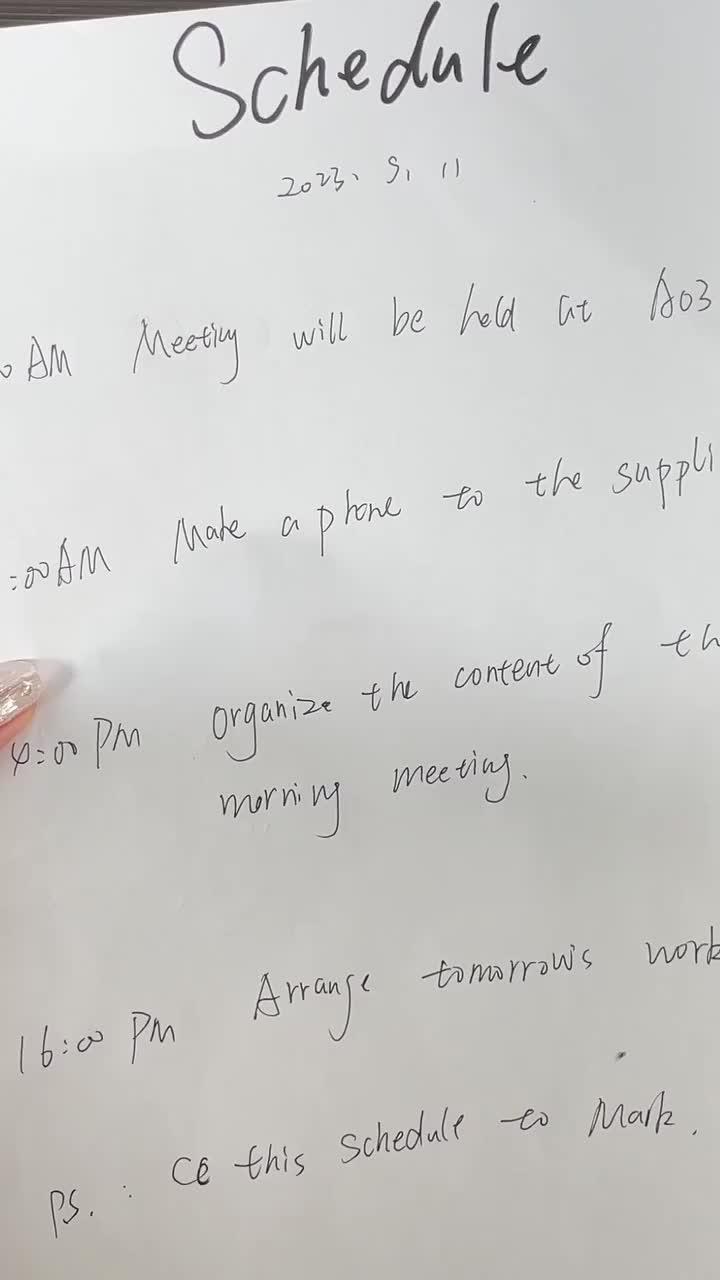 Schedule
2023. 9. 11
0 AM Meeting will be held at A03
:00 AM Make a phone to the suppli
4:00 PM organize the content of th
morning meeting.
16:00 PM Arrange tomorrow's work
PS. : CC this schedule to Mark.